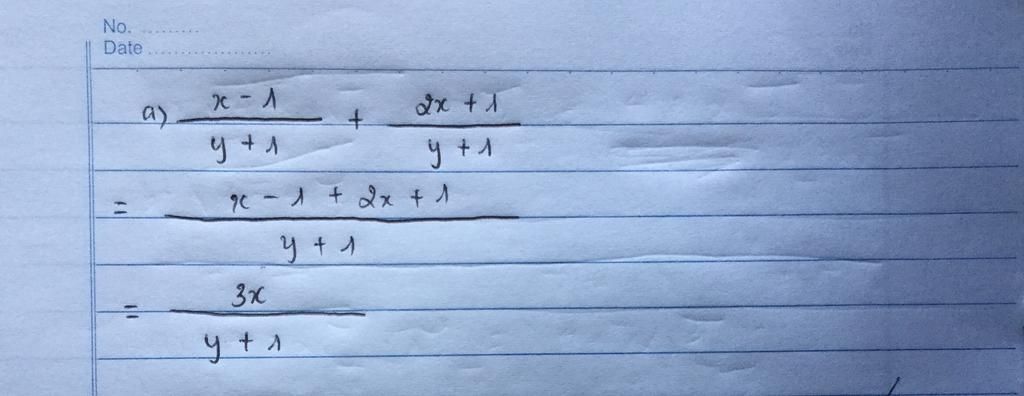 No. .........
Date ...................
a) \frac{x - 1}{y + 1} + \frac{2x + 1}{y + 1}
= \frac{x - 1 + 2x + 1}{y + 1}
= \frac{3x}{y + 1}